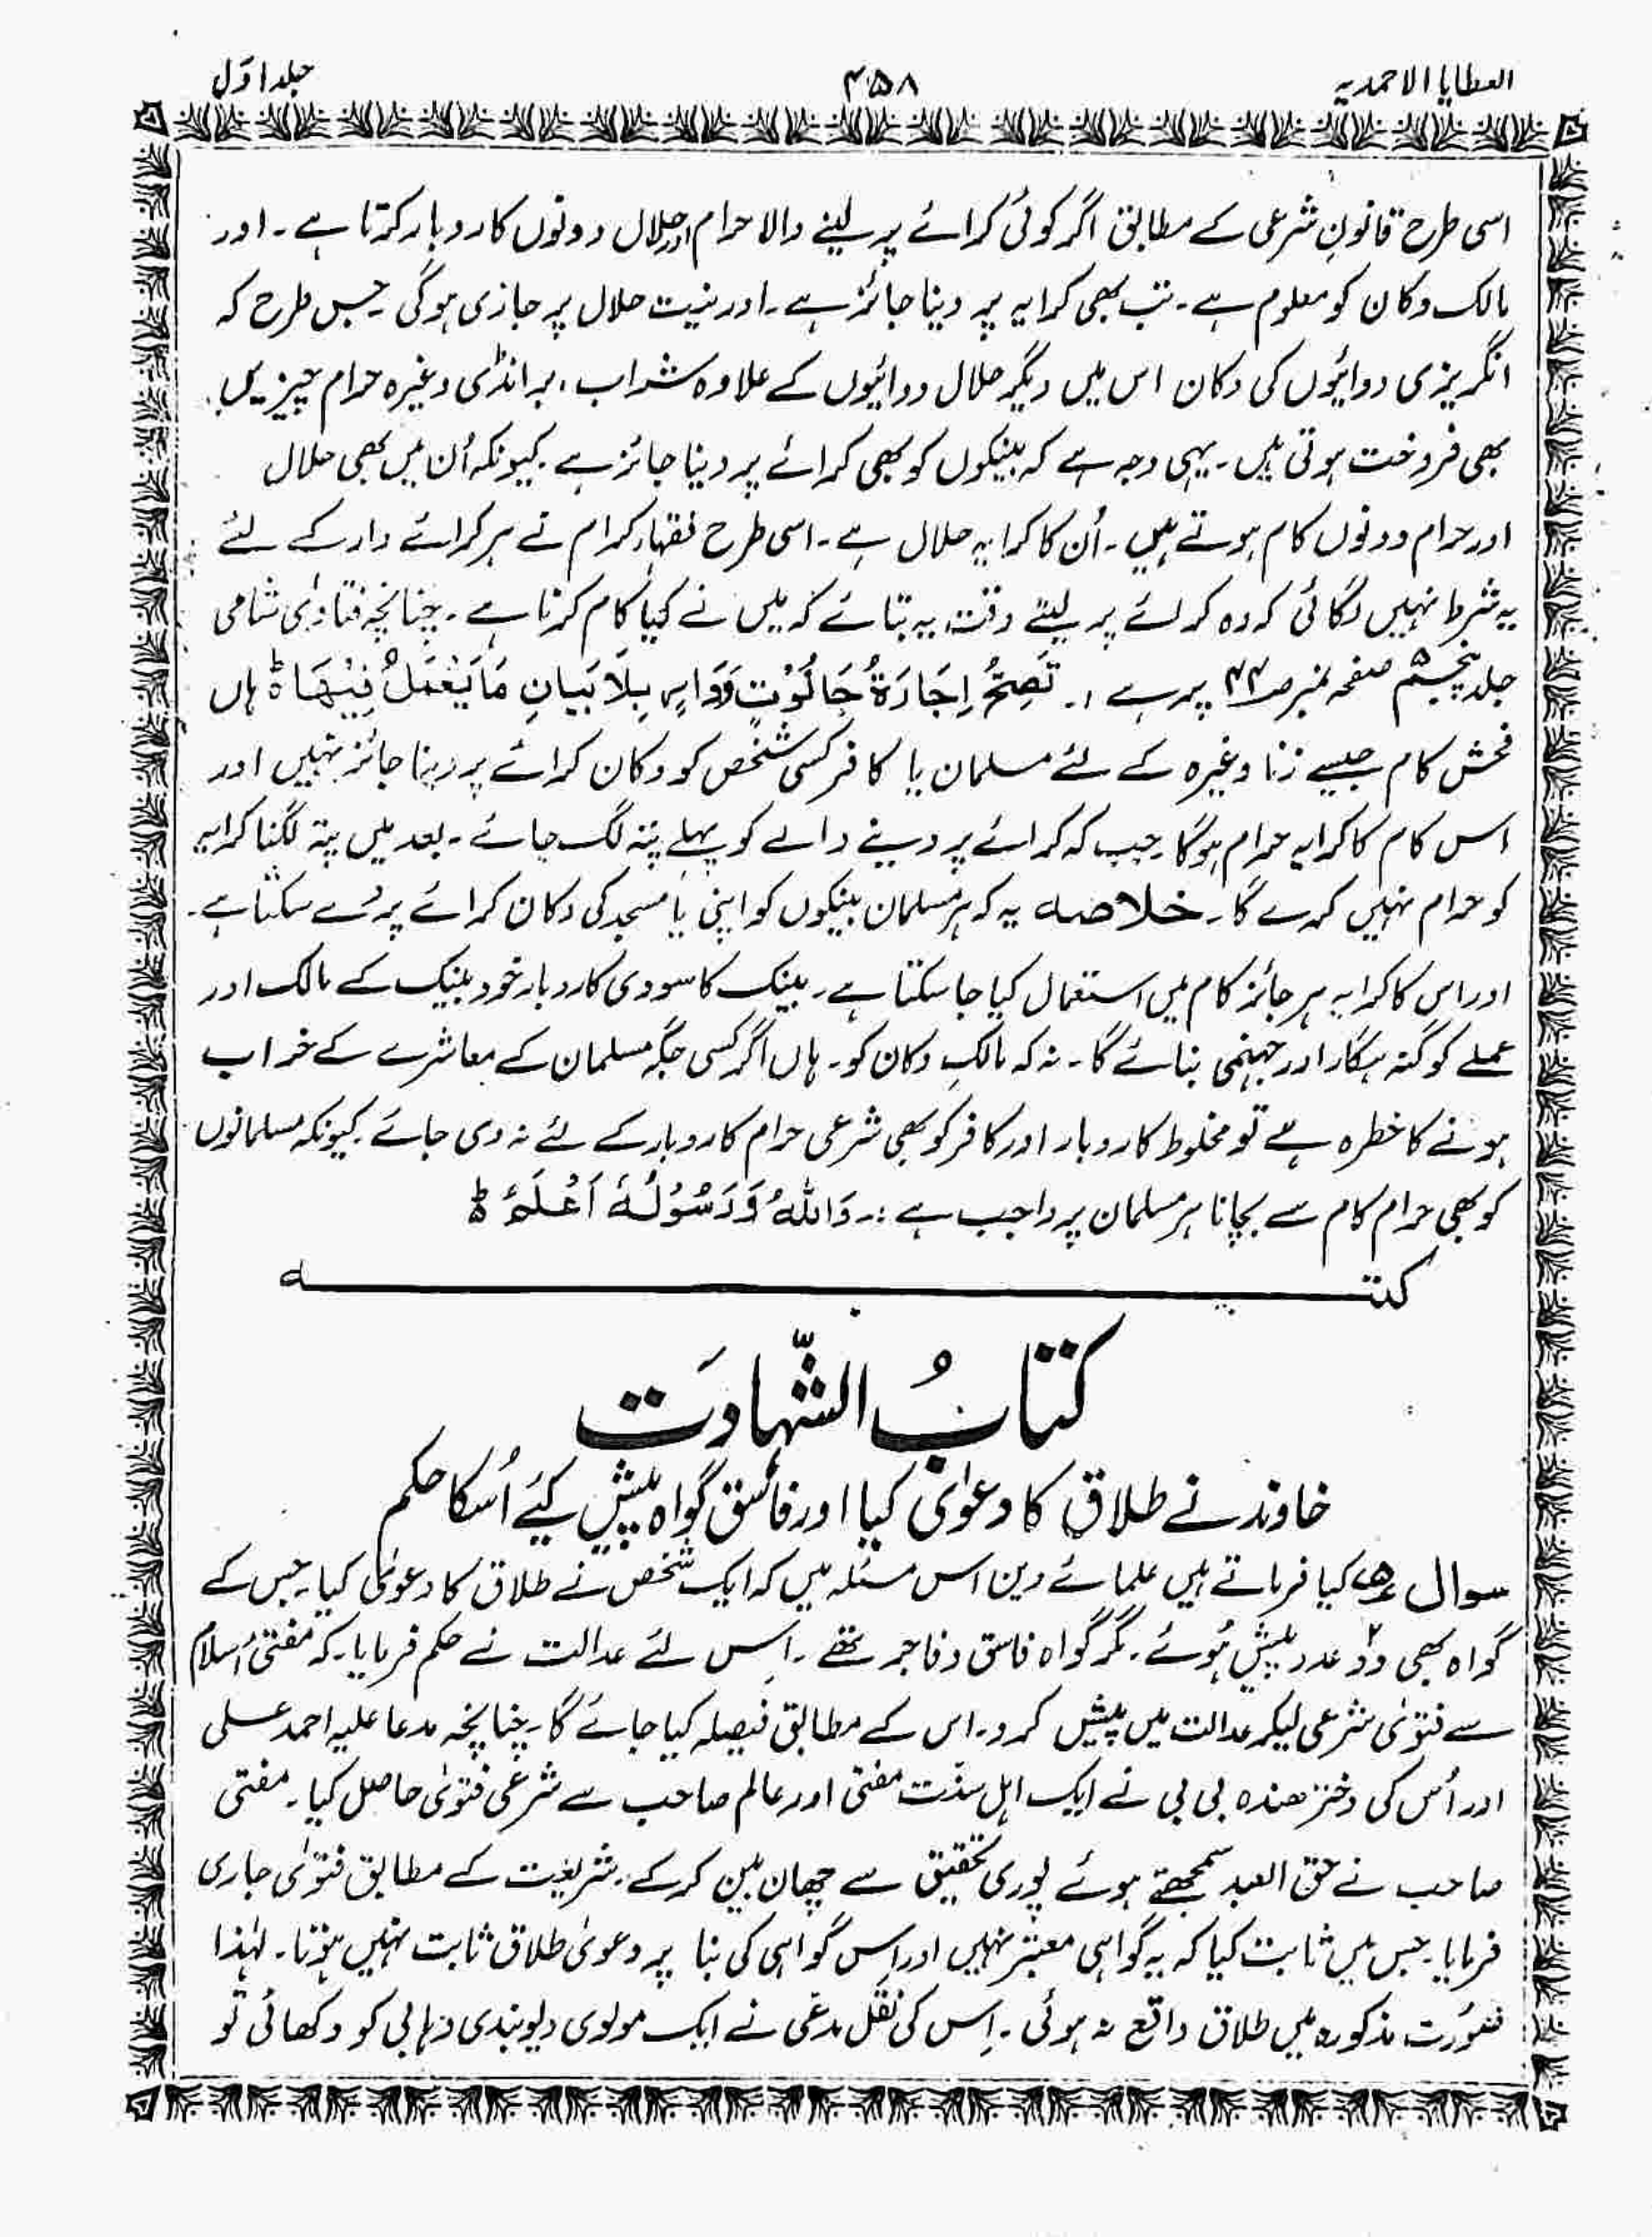 العطایا الاحمدیہ
۴۵۸
جلد اوّل
اسی طرح قانونِ شرعی کے مطابق اگر کوئی کرائے پر لینے والا حرام اور حلال دونوں کاروبار کرتا ہے۔ اور
مالک دکان کو معلوم ہے۔ تب بھی کرایہ پر دینا جائز ہے۔ اور نیت حلال پر جازی ہوگی۔ جس طرح کہ
انگریزی دوائیوں کی دکان اس میں دیگر حلال دوائیوں کے علاوہ شراب، برانڈی وغیرہ حرام چیزیں
بھی فروخت ہوتی ہیں۔ یہی وجہ ہے کہ بینکوں کو بھی کرائے پر دینا جائز ہے۔ کیونکہ اُن میں بھی حلال
اور حرام دونوں کام ہوتے ہیں۔ اُن کا کرایہ حلال ہے۔ اسی طرح فقہاء کرام نے ہر کرائے دار کے لئے
یہ شرط نہیں لگائی کہ وہ کرائے پر لیتے وقت یہ بتائے کہ میں نے کیا کام کرنا ہے۔ چنانچہ فتاویٰ شامی
جلد پنجم ۵ صفحہ نمبر صـ۴۴ پر ہے :۔ تَصِحُّ اِجَارَةُ حَانُوْتٍ وَدَارٍ بِلَا بَیَانِ مَا یَعْمَلُ فِیْهَا ؕ ہاں
فحش کام جیسے زنا وغیرہ کے لئے مسلمان یا کافر کسی شخص کو دکان کرائے پر دینا جائز نہیں اور
اس کام کا کرایہ حرام ہوگا۔ جب کہ کرائے پر دینے والے کو پہلے پتہ لگ جائے۔ بعد میں پتہ لگنا کرایہ
کو حرام نہیں کرے گا۔ خلاصہ یہ کہ ہر مسلمان بینکوں کو اپنی یا مسجد کی دکان کرائے پر دے سکتا ہے۔
اور اس کا کرایہ ہر جائز کام میں استعمال کیا جا سکتا ہے۔ بینک کا سودی کاروبار خود بینک کے مالک اور
عملے کو گنہگار اور جہنمی بنائے گا۔ نہ کہ مالکِ دکان کو۔ ہاں اگر کسی جگہ مسلمان کے معاشرے کے خراب
ہونے کا خطرہ ہے تو مخلوط کاروبار اور کافر کو بھی شرعی حرام کاروبار کے لئے نہ دی جائے۔ کیونکہ مسلمانوں
کو بھی حرام کام سے بچانا ہر مسلمان پر واجب ہے :۔ وَاللّٰہُ وَرَسُوْلُہٗ اَعْلَمُ ؕ
کتبـــــــــہ
کتابُ الشّہادَت
خاوند نے طلاق کا دعوٰی کیا اور فاسق گواہ پیش کیئے اُسکا حکم
سوال کیا فرماتے ہیں علمائے دین اس مسئلہ میں کہ ایک شخص نے طلاق کا دعویٰ کیا۔ جس کے
گواہ بھی دو ۲ عدد پیش ہُوئے۔ مگر گواہ فاسق و فاجر تھے۔ اِس لئے عدالت نے حکم فرمایا۔ کہ مفتیٔ اسلام
سے فتوٰی شرعی لیکر عدالت میں پیش کرو۔ اس کے مطابق فیصلہ کیا جائے گا۔ چنانچہ مدعا علیہ احمد علی
اور اُس کی دختر ھندہ بی بی نے ایک اہل سنّت مفتی اور عالم صاحب سے شرعی فتوٰی حاصل کیا۔ مفتی
صاحب نے حق العبد سمجھتے ہوئے پوری تحقیق سے چھان بین کر کے، شریعت کے مطابق فتوٰی جاری
فرمایا۔ جس میں ثابت کیا کہ یہ گواہی معتبر نہیں اور اِس گواہی کی بنا پر دعویٰ طلاق ثابت نہیں ہوتا۔ لہٰذا
صُورت مذکورہ میں طلاق واقع نہ ہوئی۔ اِس کی نقل مدعی نے ایک مولوی دیوبندی وہابی کو دکھائی تو